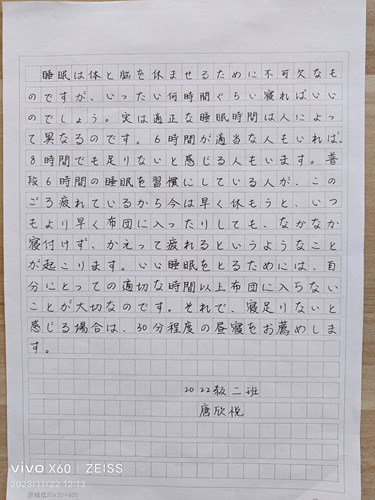 睡眠は体と脳を休ませるために不可欠なも
のですが、いったい何時間ぐらい寝ればいい
のでしょう。実は適正な睡眠時間は人によっ
て異なるのです。6時間が適当な人もいれば、
8時間でも足りないと感じる人もいます。普
段6時間の睡眠を習慣にしている人が、この
ごろ疲れているから今は早く休もうと、いつ
もより早く布団に入ったりしても、なかなか
寝付けず、かえって疲れるというようなこと
が起こります。いい睡眠をとるためには、自
分にとっての適切な時間以上布団に入らない
ことが大切なのです。それで、寝足りないと
感じる場合は、30分程度の昼寝をお薦めしま
す。
2022级二班
唐欣悦
vivo X60 | ZEISS
2023/11/22 12:13